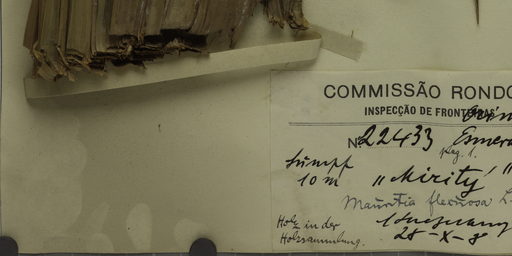 COMMISSÃO RONDO
INSPECÇÃO DE FRONTEIRAS
No 22433 Esmera
Sumpf
10 m "Mirity"
Mauritia flexuosa L.
Holz in der
Holzsammlung.
25-X-8